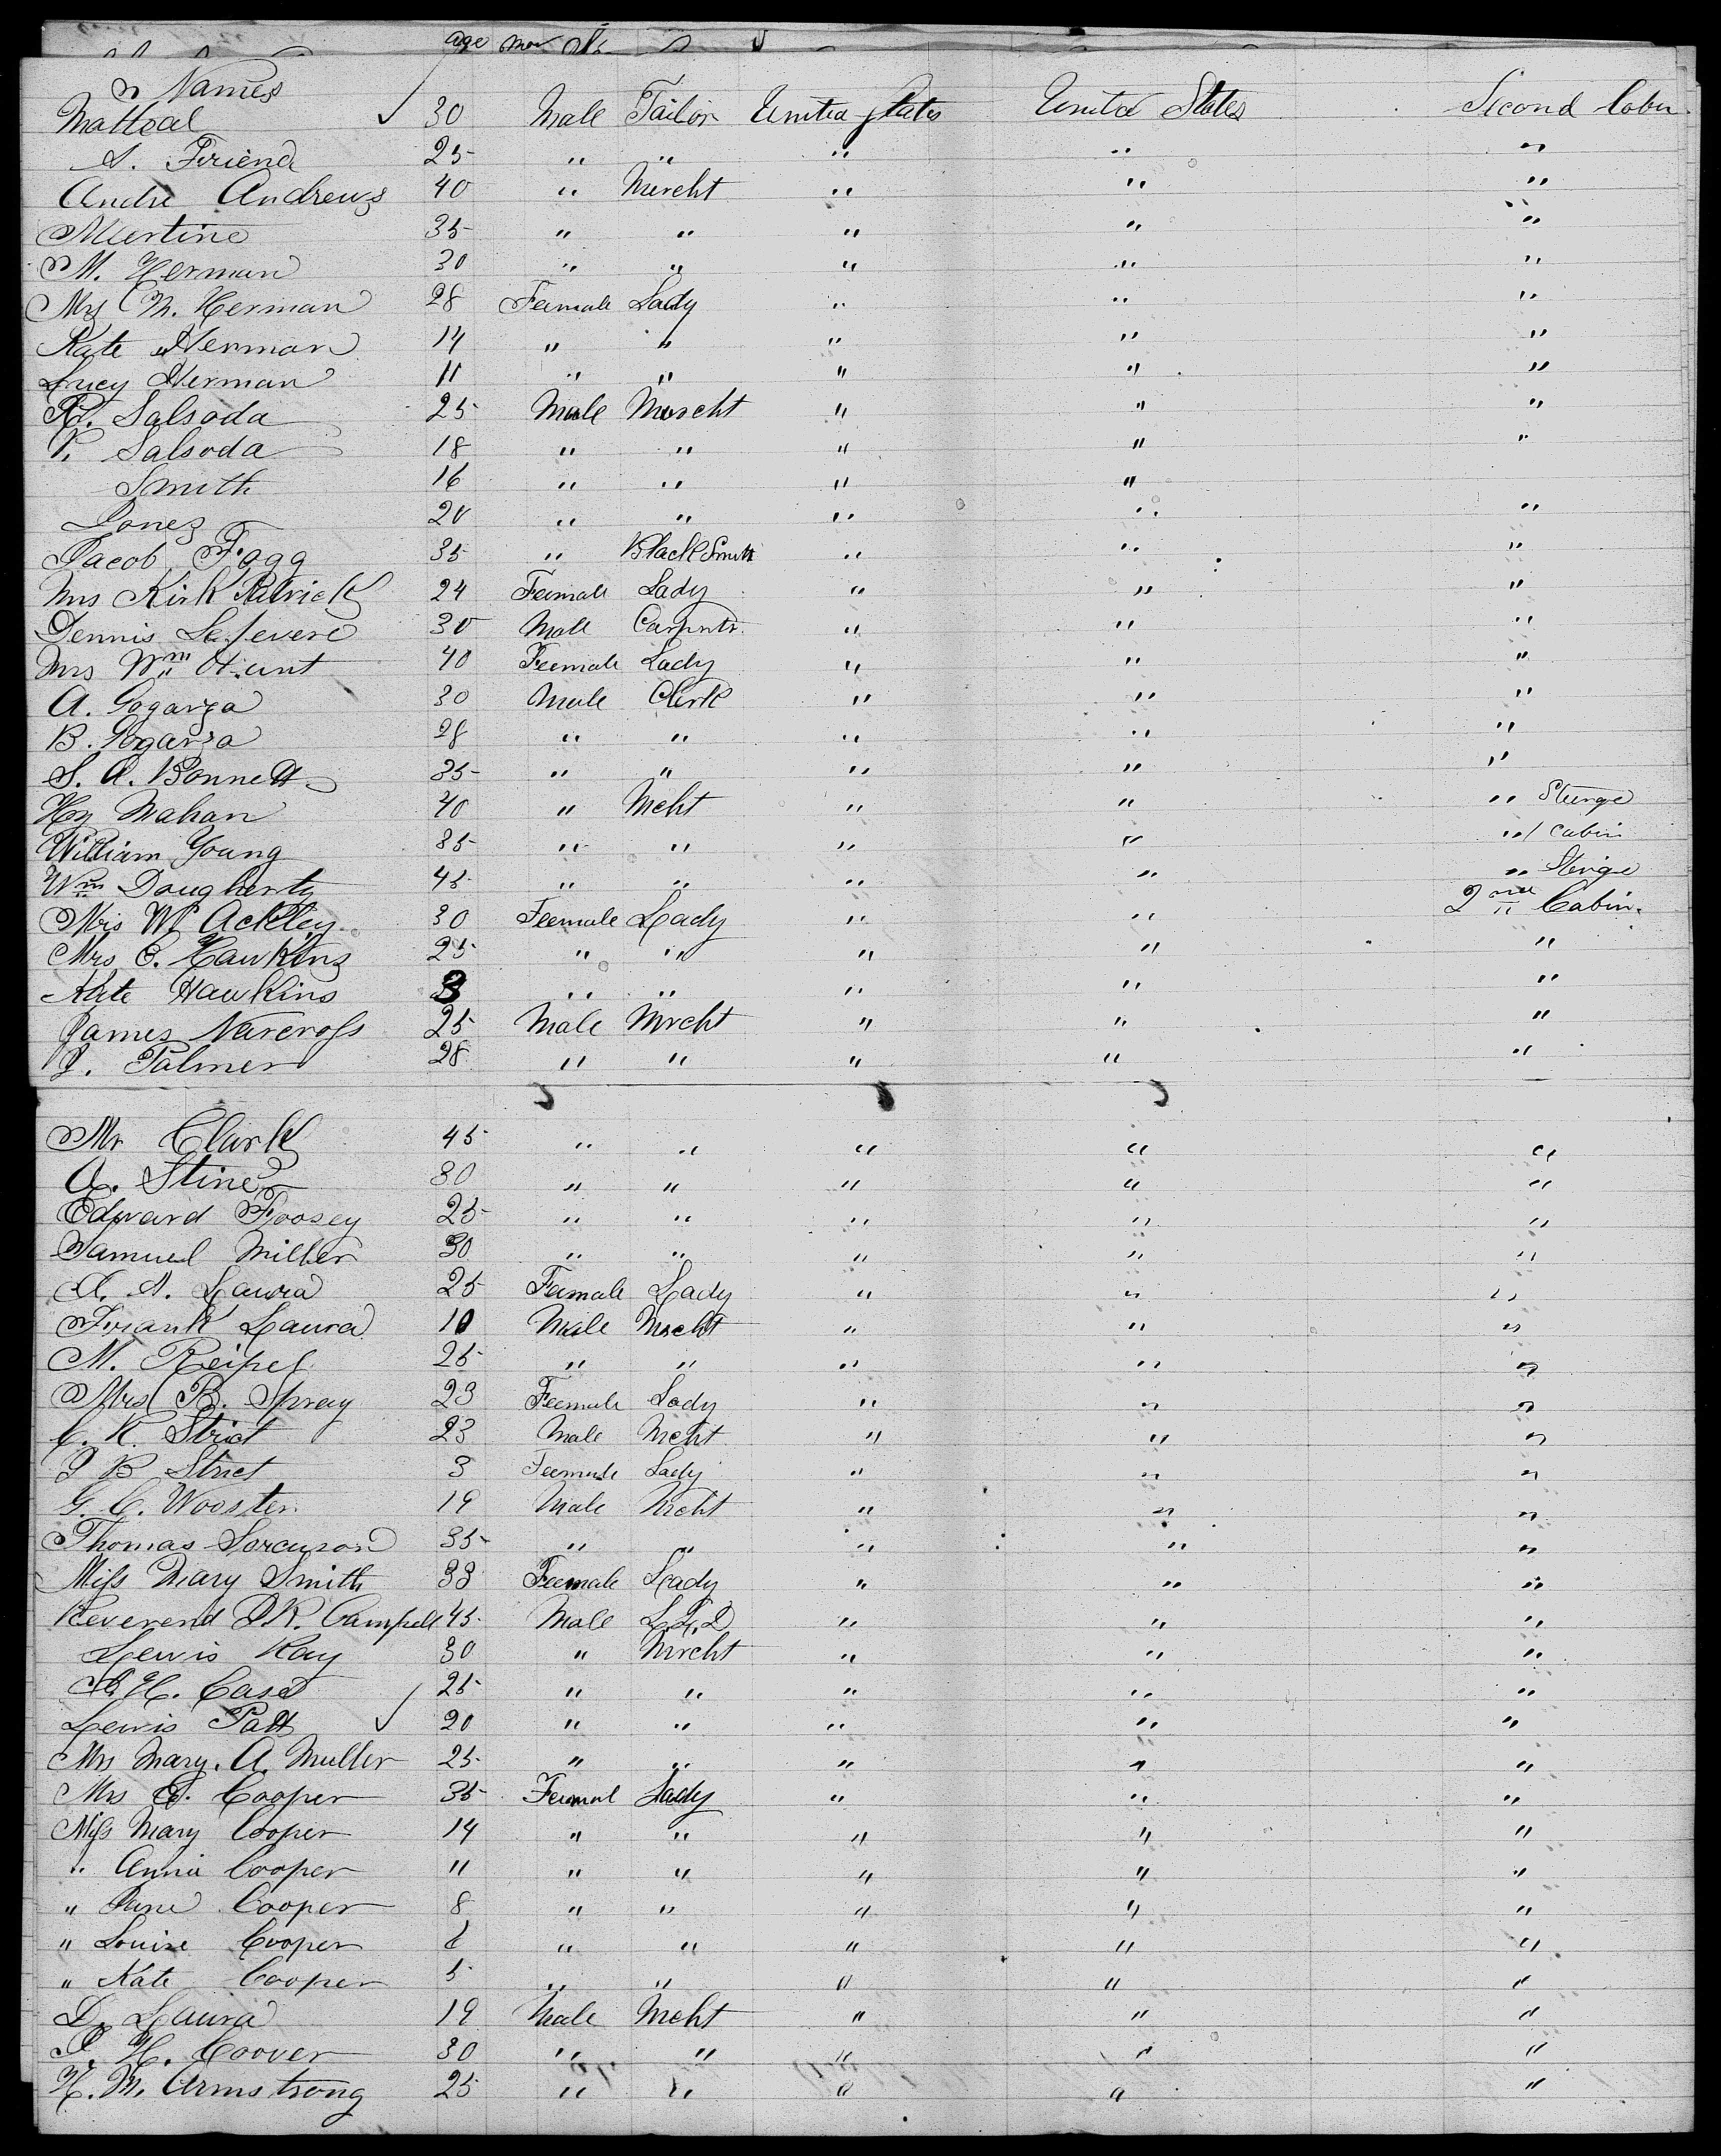 age
Names
Matteal 30 Male Tailor United States United States Second Cabn.
S. Friend 25 " " " " "
Andre Andrews 40 " Mercht " " "
Mertine 35 " " " " "
M. Herman 30 " " " " "
Mrs M. Herman 28 Female Lady " " "
Kate Herman 14 " " " " "
Lucy Herman 11 " " " " "
R. Salsoda 25 Male Mercht " " "
P. Salsoda 18 " " " " "
Smith 16 " " " "
Jones 20 " " " " "
Jacob Fogg 35 " Black Smith " " "
Mrs Kirk Patrick 24 Female Lady " " "
Dennis Lefevere 30 Male Carpntr. " " "
Mrs Wm Hunt 40 Female Lady " " "
A. Gogarza 30 Male Clerk " " "
B. Gogarza 28 " " " " "
S. A. Bonnett 35 " " " " "
Hy Mahan 40 " Mcht " " " Sturge
William Young 35 " " " " " 1 Cabin
Wm Dougherty 45 " " " " " Sterige
Mrs W. Ackley 30 Female Lady " " 2nd Cabin.
Mrs C. Hawkins 25 " " " " "
Kate Hawkins 3 " " " " "
James Narcross 25 Male Mrcht " " "
J. Palmer 28 " " " " "
Mr Clark 45 " " " " "
A. Stine 30 " " " " "
Edward Foosey 25 " " " " "
Samuel Miller 30 " " " " "
A. A. Laura 25 Female Lady " " "
Frank Laura 10 Male Mrcht " " "
M. Reipel 25 " " " " "
Mrs B. Spray 23 Female Lady " " "
C. K. Strict 23 Male Mcht " " "
J B Strict 3 Female Lady " " "
G. C. Wooster 19 Male Mrcht " " "
Thomas Sorcuson 35 " " " " "
Miss Mary Smith 33 Female Lady " " "
Reverend D.R. Campell 45 Male L.L.D " " "
Lewis Ray 30 " Mrcht " " "
A. H. Case 25 " " " " "
Lewis Patt 20 " " " " "
Mrs Mary. A. Muller 25 " " " " "
Mrs E. Cooper 35 Femal Lady " " "
Miss Mary Cooper 14 " " " " "
" Annie Cooper 11 " " " " "
" Jane Cooper 8 " " " " "
" Louise Cooper 6 " " " " "
" Kate Cooper 5 " " " " "
D. Laura 19 Male Mcht " " "
J. H. Coover 30 " " " " "
H. M. Armstrong 25 " " " " "